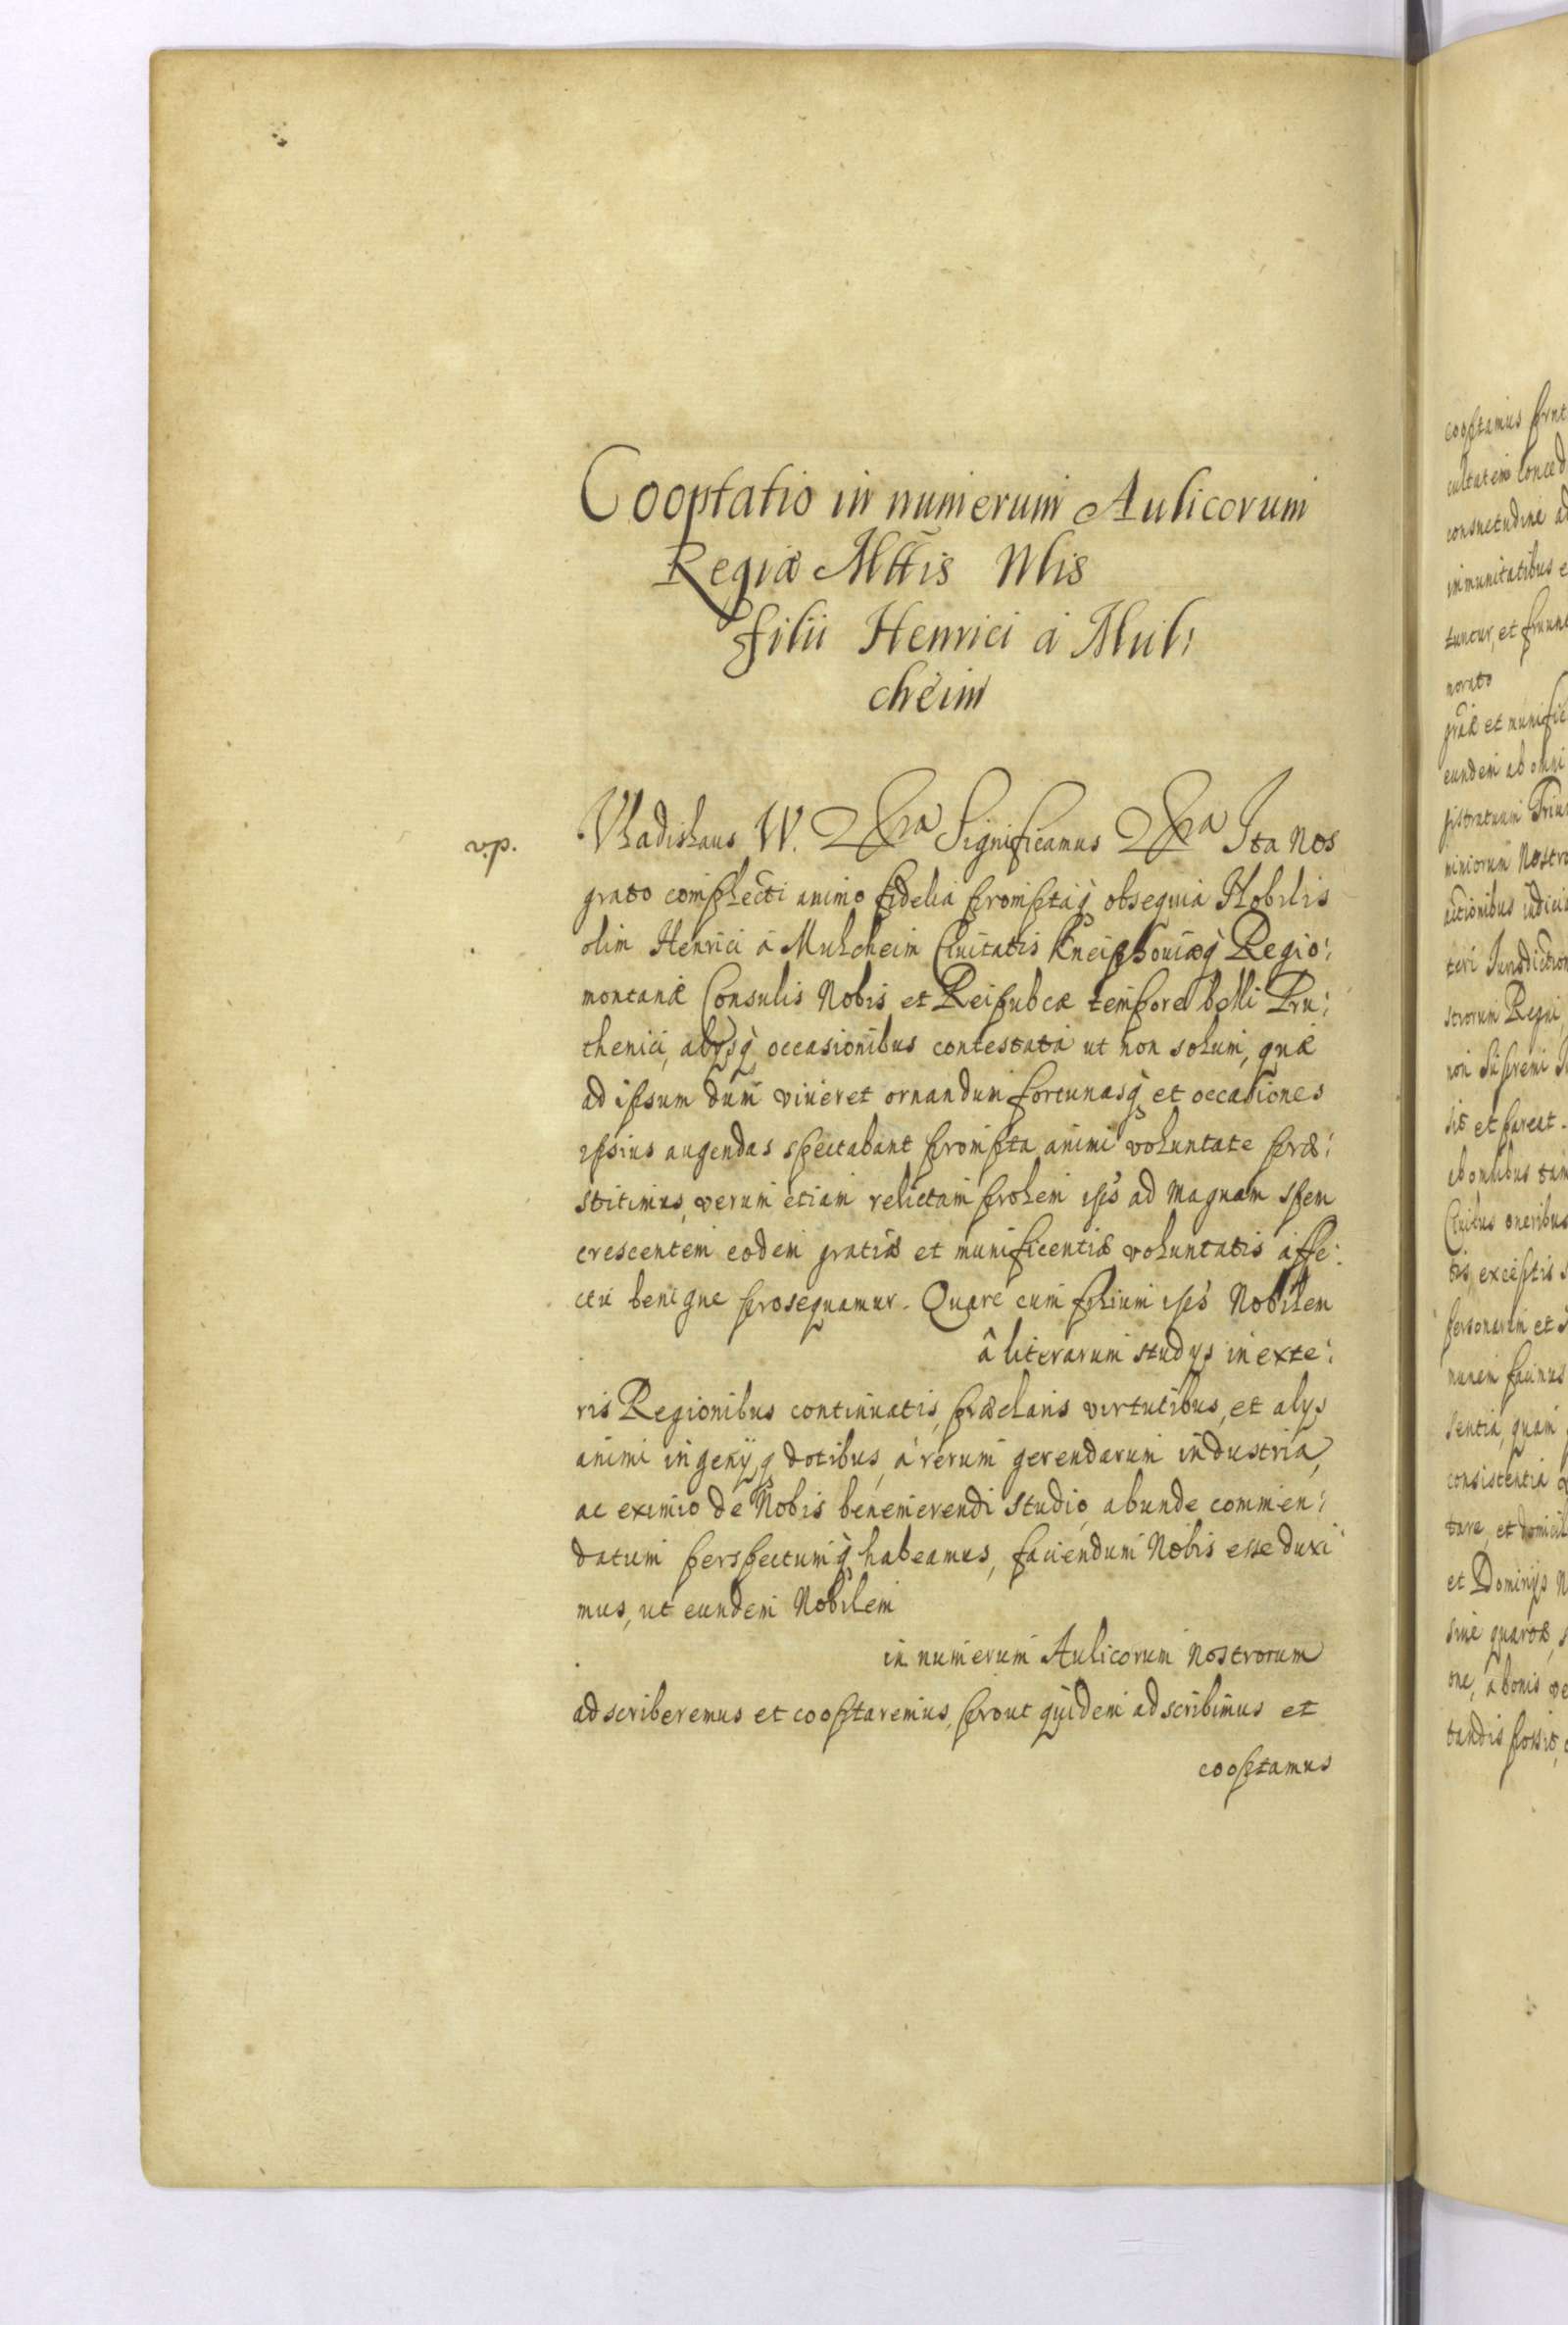 Cooptatio in numerum Aulicorum
Regiæ Mttis Nlis
filii Henrici à Mul:
cheim
v.p.
Vladislaus IV. &ra Significamus &ra Ita nos
grato complecti animo fidelia promptaq obsequia Nobilis
olim Henrici à Mulcheim Ciuitatis Kneiphouiæq Regio:
montanæ Consulis Nobis et Reipubcæ tempore belli Pru:
thenici, alysq occasionibus contestata ut non solum, quæ
ad ipsum dum viueret ornandum fortunasq et occasiones
ipsius augendas spectabant prompta animi voluntate præ:
stitimus, verum etiam relictam prolem ips's ad magnam spem
crescentem eodem gratiæ et munificentiæ voluntatis affe:
ctu benigne prosequamur. Quare cum filium ips's Nobilem
â literarum studys in exte:
ris Regionibus continuatis, præclaris virtutibus, et alys
animi ingenyq dotibus, à rerum gerendarum industria,
ac eximio de Nobis benemerendi studio, abunde commen:
datum perspectumq habeamus, faciendum Nobis esse duxi
mus, ut eundem Nobilem
in numerum Aulicorum nostrorum
adscriberemus et cooptaremus, prout quidem adscribimus et
cooptamus
cooptamus
cultatem conced
consuetudine ad
immunitatibus e
tuntur, et fruunt
norato
et munific
eundem ab omni
gistratuum
miniorum Nostro
actionibus iudicis
teri Jurisdiction
strorum Regni
non Supremi
sit et pareat.
ab omnibus tam
Ciuibus oneribus
tis, exceptis
personarum et
facinus
sentia, quam
consistentia
tare, et domicil
et Dominys N
siue
one, â bonis ve
tandis possit,